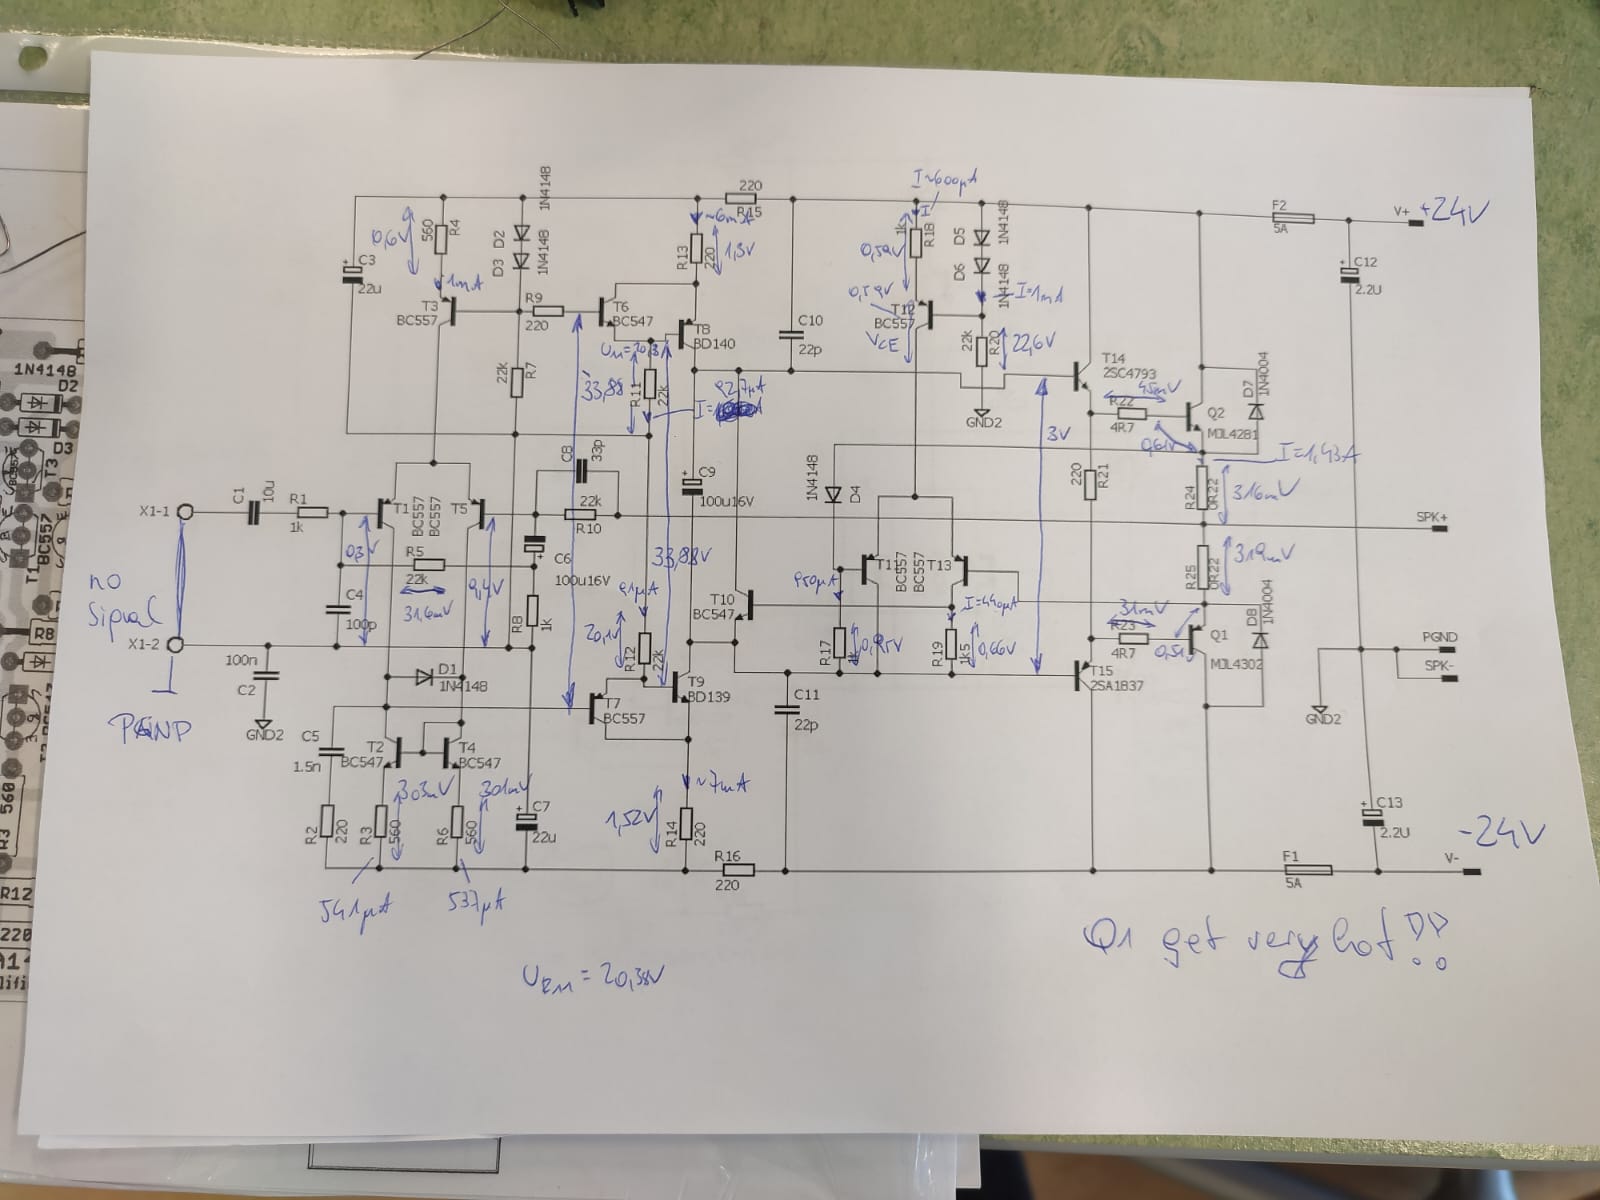 1N4148
D2
D3
T3
BC557
T1
R8
560
R3
R12
220
220
R15
I≈600µA
I
F2
5A
V+
+24V
0,6V
560
R4
D2
1N4148
D3
1N4148
~6mA
R13
220
1,3V
1k
R18
0,59V
D5
1N4148
D6
1N4148
I=1mA
C3
22u
1mA
T3
BC557
R9
220
T6
BC547
T8
BD140
C10
22p
0,59V
T12
BC557
VCE
22k
R20
22,6V
C12
2.2U
22k
R7
33,88
R11
22k
927µA
I=
GND2
T14
2SC4793
45mV
R22
4R7
Q2
MJL4281
D7
1N4004
3V
0,61V
I=1,43A
C8
33p
22k
R10
C9
100u16V
1N4148
D4
220
R21
R24
0R22
316mV
SPK+
X1-1
C1
10u
R1
1k
T1
BC557
BC557
T5
R5
22k
31,6mV
C6
100u16V
33,88V
T11
BC557
BC557
T13
R25
0R22
319mV
no
Signal
C4
100p
0,4V
R8
1k
91µA
20,1V
R12
22k
T10
BC547
950µA
R17
0,95V
I=440µA
R19
1k5
0,66V
31mV
R23
4R7
0,51V
Q1
MJL4302
D8
1N4004
X1-2
100n
C2
GND2
PGND
D1
1N4148
T9
BD139
T7
BC557
C11
22p
T15
2SA1837
PGND
SPK-
GND2
C5
1.5n
T2
BC547
T4
BC547
303mV
301mV
R2
220
R3
560
R6
560
C7
22u
~7mA
1,52V
R14
220
R16
220
C13
2.2U
-24V
F1
5A
V-
541µA
537µA
Q1 get very hot!!
UR11 = 20,38V